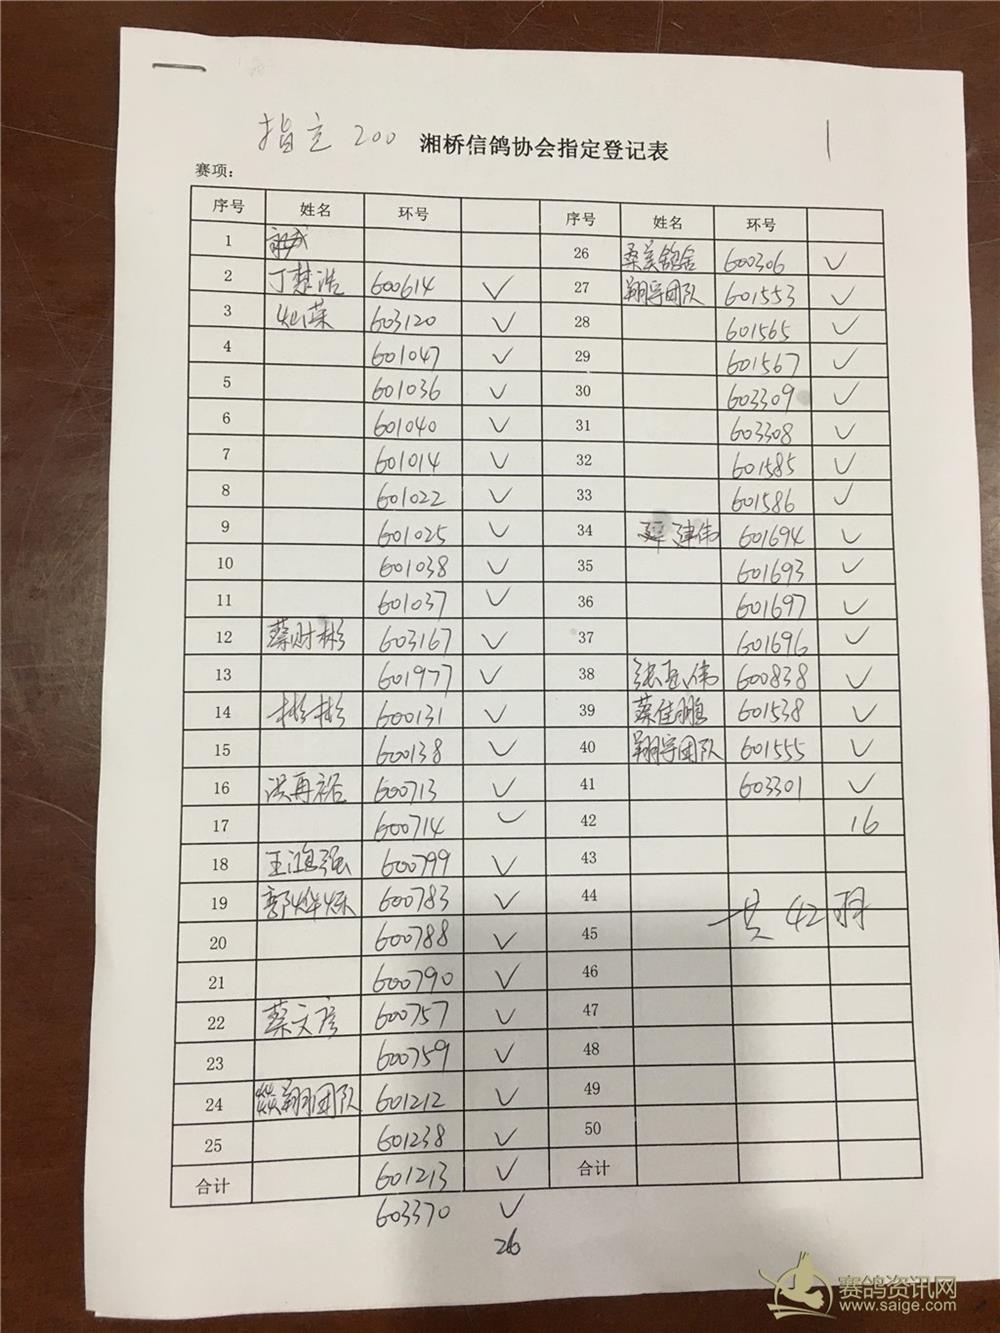 指定 200 湘桥信鸽协会指定登记表 1
赛项：
序号 姓名 环号 序号 姓名 环号
1 26 桑美鸽舍 600306 ✓
2 丁楚浩 600614 ✓ 27 翔宇团队 601553 ✓
3 灿荣 603120 ✓ 28 601565 ✓
4 601047 ✓ 29 601567 ✓
5 601036 ✓ 30 603309 ✓
6 601040 ✓ 31 603308 ✓
7 601014 ✓ 32 601585 ✓
8 601022 ✓ 33 601586 ✓
9 601025 ✓ 34 建伟 601694 ✓
10 601038 ✓ 35 601693 ✓
11 601037 ✓ 36 601697 ✓
12 蔡财彬 603167 ✓ 37 601696 ✓
13 601977 ✓ 38 张 伟 600838 ✓
14 彬彬 600131 ✓ 39 蔡佳鹏 601538 ✓
15 600138 ✓ 40 翔宇团队 601555 ✓
16 洪再裕 600713 ✓ 41 603301 ✓
17 600714 ✓ 42 16
18 王鸿强 600799 ✓ 43
19 郭烨烁 600783 ✓ 44 共42羽
20 600788 ✓ 45
21 600790 ✓ 46
22 蔡文彦 600757 ✓ 47
23 600759 ✓ 48
24 燚翔团队 601212 ✓ 49
25 601238 ✓ 50
合计 601213 ✓ 合计
603370 ✓
26
赛鸽资讯网
www.saige.com